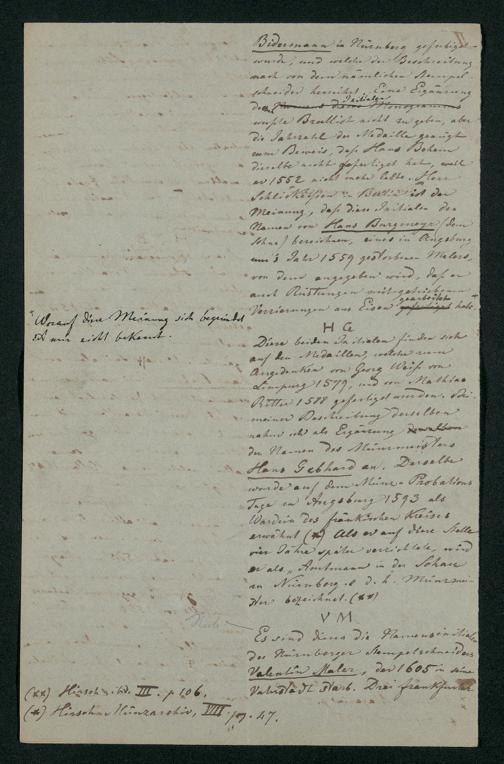 Bidermann in Nürnberg gefertigt
wurde, und welche der Beschreibung
nach von dem nämlichen Stempel-
schneider herrührt. Eine Ergänzung
der Initialen
wußte Brollist nicht zu geben, aber
die Jahrzahl der Medaille genügt
zum Beweis, daß Hans Behem
dieselbe nicht gefertigt hat, weil
er 1552 nicht mehr lebte. Herr
Schlickeysen in Berlin ist der
Meinung, daß diese Initialen den
Namen von Hans Burgmeyr (dem
Sohne) bezeichnen, eines in Augsburg
um's Jahr 1559 gestorbenen Malers,
von dem angegeben wird, daß er
auch Rüstungen mit getriebenen
Verzierungen aus Eisen gearbeitet habe.
Worauf diese Meinung sich begründet
ist mir nicht bekannt.
H G
Diese beiden Initialen finden sich
auf den Medaillen, welche zum
Angedenken von Georg Weiß von
Limpurg 1579, und von Mathias
Ritter 1588 gefertigt wurden. Bei
meiner Beschreibung derselben
nahm ich als Ergänzung
den Namen des Münzmeisters
Hans Gebhard an. Derselbe
wurde auf dem Münz-Probations
Tage in Augsburg 1593 als
Wardein des fränkischen Kreises
erwähnt (*) Als er auf diese Stelle
vier Jahre später verzichtete, wird
er als „Amtmann in der Schau
zu Nürnberg" d. h. Münzmei-
ster bezeichnet. (**)
V M
Es sind dieses die Namensinitialen
des Nürnberger Stempelschneiders
Valentin Maler, der 1605 in seiner
Vaterstadt starb. Drei Frankfurter
(**) Hirsch ibid. III. p 106.
(*) Hirsch Münzarchiv, VIII. pag. 47.